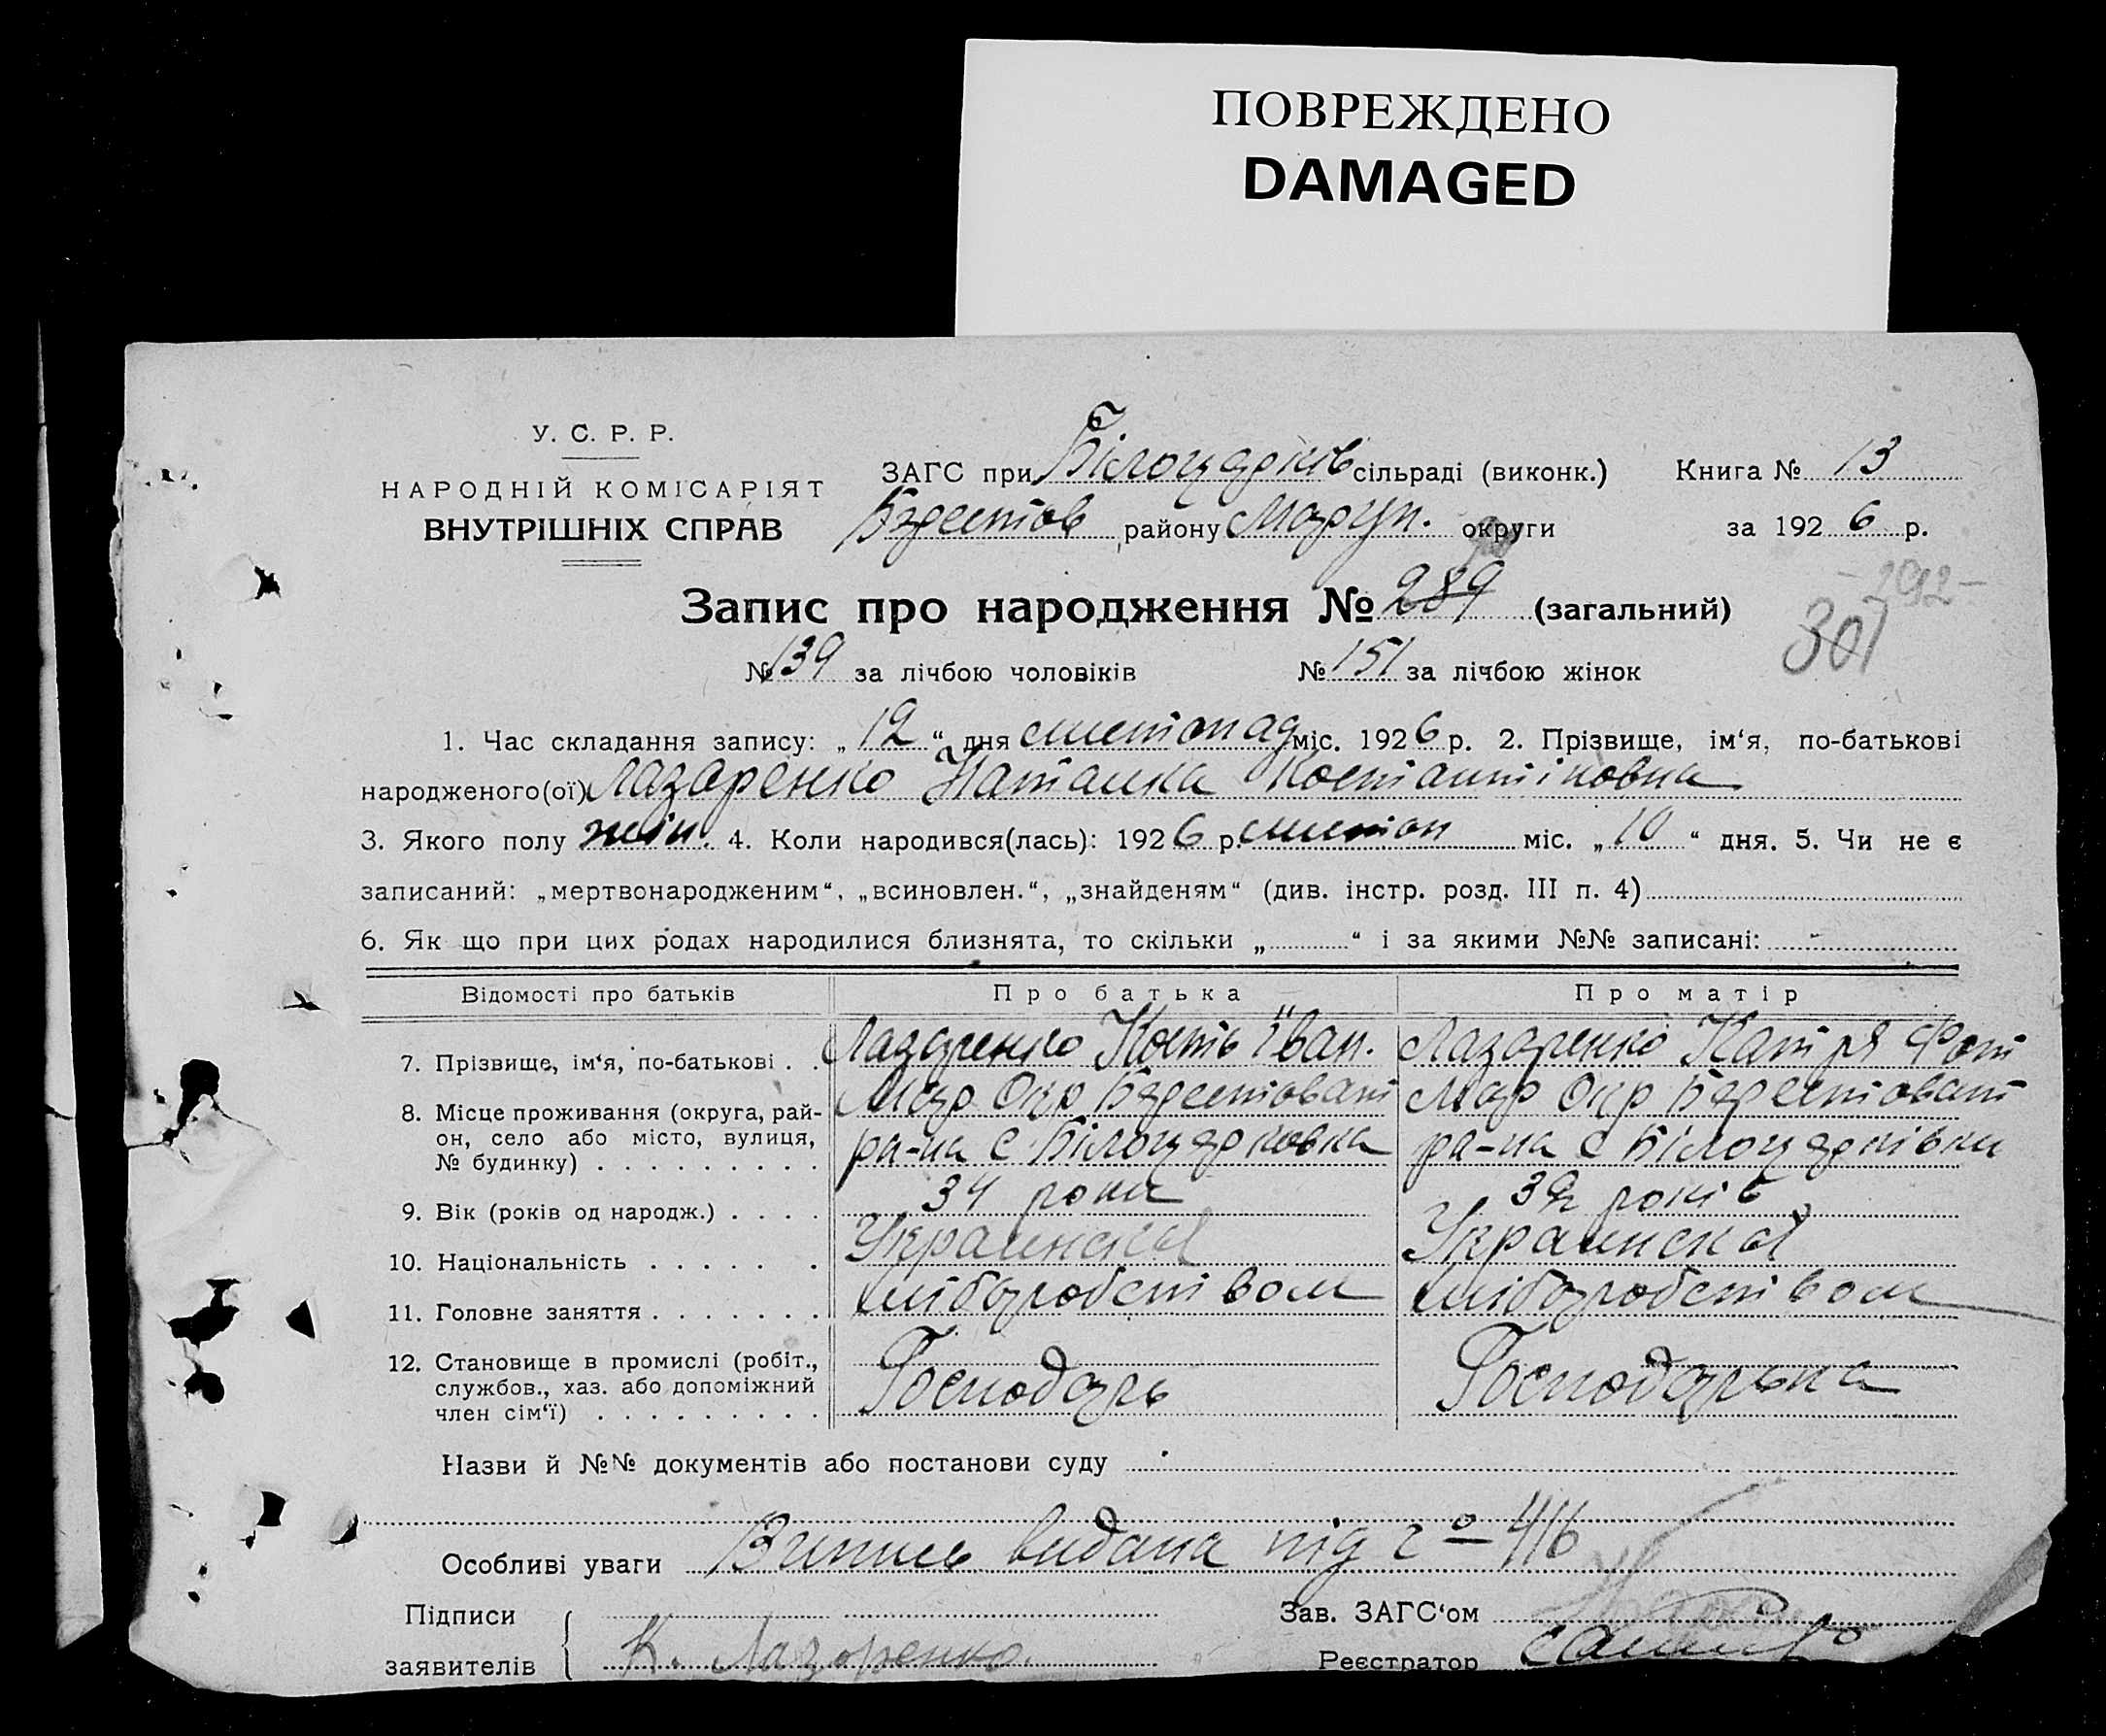 ПОВРЕЖДЕНО
DAMAGED
У. С. Р. Р.
НАРОДНІЙ КОМІСАРІЯТ
ВНУТРІШНІХ СПРАВ
ЗАГС при Білоцерків сільраді (виконк.) Книга № 13
Берестов району Марул. округи за 1926 р.
Запис про народження № 289 (загальний)
-292-
301
№ 139 за лічбою чоловіків № 151 за лічбою жінок
1. Час складання запису: „12“ дня листопад міс. 1926 р. 2. Прізвище, ім‘я, по-батькові
народженого(ої) Лазаренко Наталка Костантіновна
3. Якого полу жін. 4. Коли народився(лась): 1926 р. листоп міс. „10“ дня. 5. Чи не є
записаний: „мертвонародженим“, „всиновлен.“, „знайденям“ (див. інстр. розд. III п. 4)
6. Як що при цих родах народилися близнята, то скільки „ “ і за якими №№ записані: -
Відомості про батьків Про батька Про матір
7. Прізвище, ім‘я, по-батькові . . Лазаренко Кость Іван. Лазаренко Катря Фот
8. Місце проживання (округа, район, село або місто, вулиця, № будинку) Мар Окр Берестоват Мар Окр Берестоват
ра-на с Білоцерковка ра-на с Білоцерківки
9. Вік (років од народж.) . . . . 34 роки років
10. Національність . . . . . . Украинская Украинская
11. Головне заняття . . . . . . . хліборобством хліборобством
12. Становище в промислі (робіт., службов., хаз. або допоміжний член сім‘ї) Господарь Господарька
Назви й №№ документів або постанови суду
Особливі уваги Випись видана під 416
Підписи Зав. ЗАГС‘ом
заявителів К. Лазоренко. Реєстратор